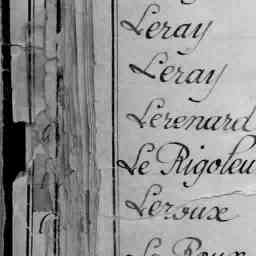 Leray
Leray
Lerenard
Le Rigoleu
Leroux
Le Roux